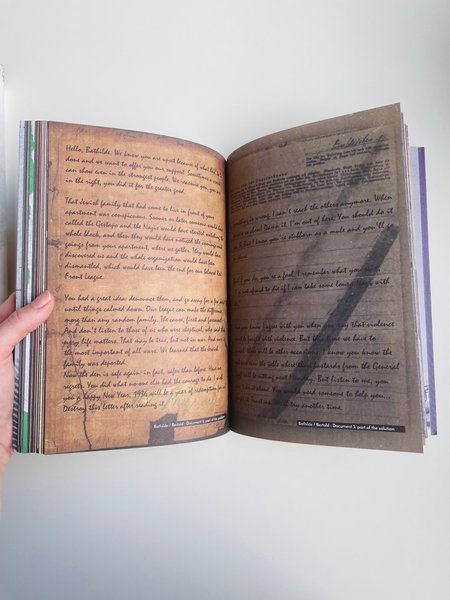 Hello, Bathilde. We know you are upset because of what
done and we want to offer you our support. Sometimes a
can show even in the strongest people. We reassure you, you
in the right, you did it for the greater good.
That Jewish family that had come to live in front of your
apartment was conspicuous. Sooner or later someone would
called the Gestapo and the Nazis would have started
whole block, and then they would have noticed the comings
goings from your apartment, where we gather. They would have
discovered us and the whole organization would have been
dismantled, which would have been the end for our beloved Red
Front League.
You had a great idea: denounce them, and go away for a
until things calmed down. Our league can make the difference
more than any random family. The cause, first and foremost.
And don't listen to those of us who were skeptical, who said
every life matters. That may be true, but not in war. And
the most important of all wars. We learned that the Jewish
family was deported.
Now the den is safe again: in fact, safer than before. Have no
regrets. You did what no one else had the courage to do. I wish
you a Happy New Year, 1936 will be a year of redemption for
Destroy this letter after reading it.
Bathilde / Bertold - Document 2: part of the
is wrong. I can't reach the others anymore. When
so close! Damn it. I'm out of here. You should do it
But I know you're stubborn as a mule and you'll
if you do, you're a fool. I remember what you
out of aid to die if I can take some lousy
with
know I agree with you when you say that violence
be fought with violence. But this time we have to
there will be other occasions. I know you know the
the table where those bastards from the General
be sitting next Monday. But listen to me, you
do it alone. You would need someone to help you...
try another time.
Bathilde / Bertold - Document 3: part of the solution